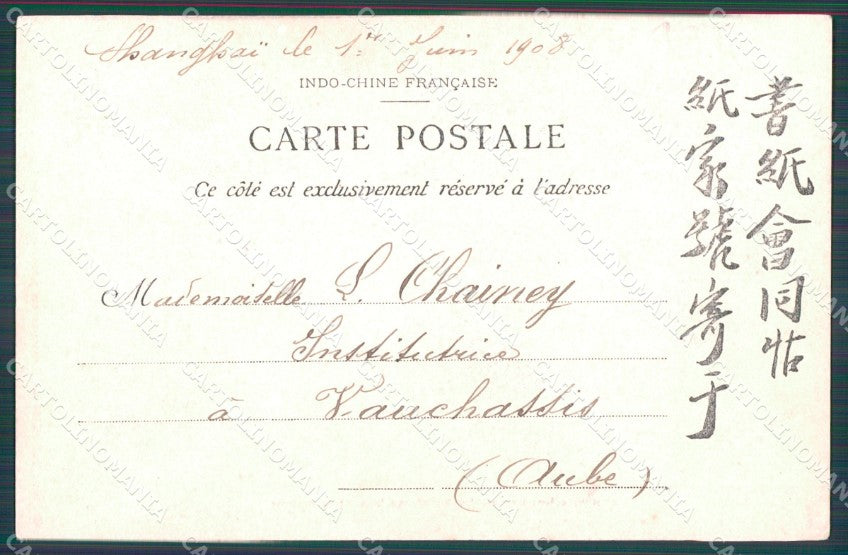 Shanghaï le 1er Juin 1908
INDO-CHINE FRANÇAISE
CARTE POSTALE
Ce côté est exclusivement réservé à l'adresse
Mademoiselle L. Chainey
Institutrice
à Vauchassis
(Aube)
書紙會同帖
紙家號寄于
CARTOLINOMANIA